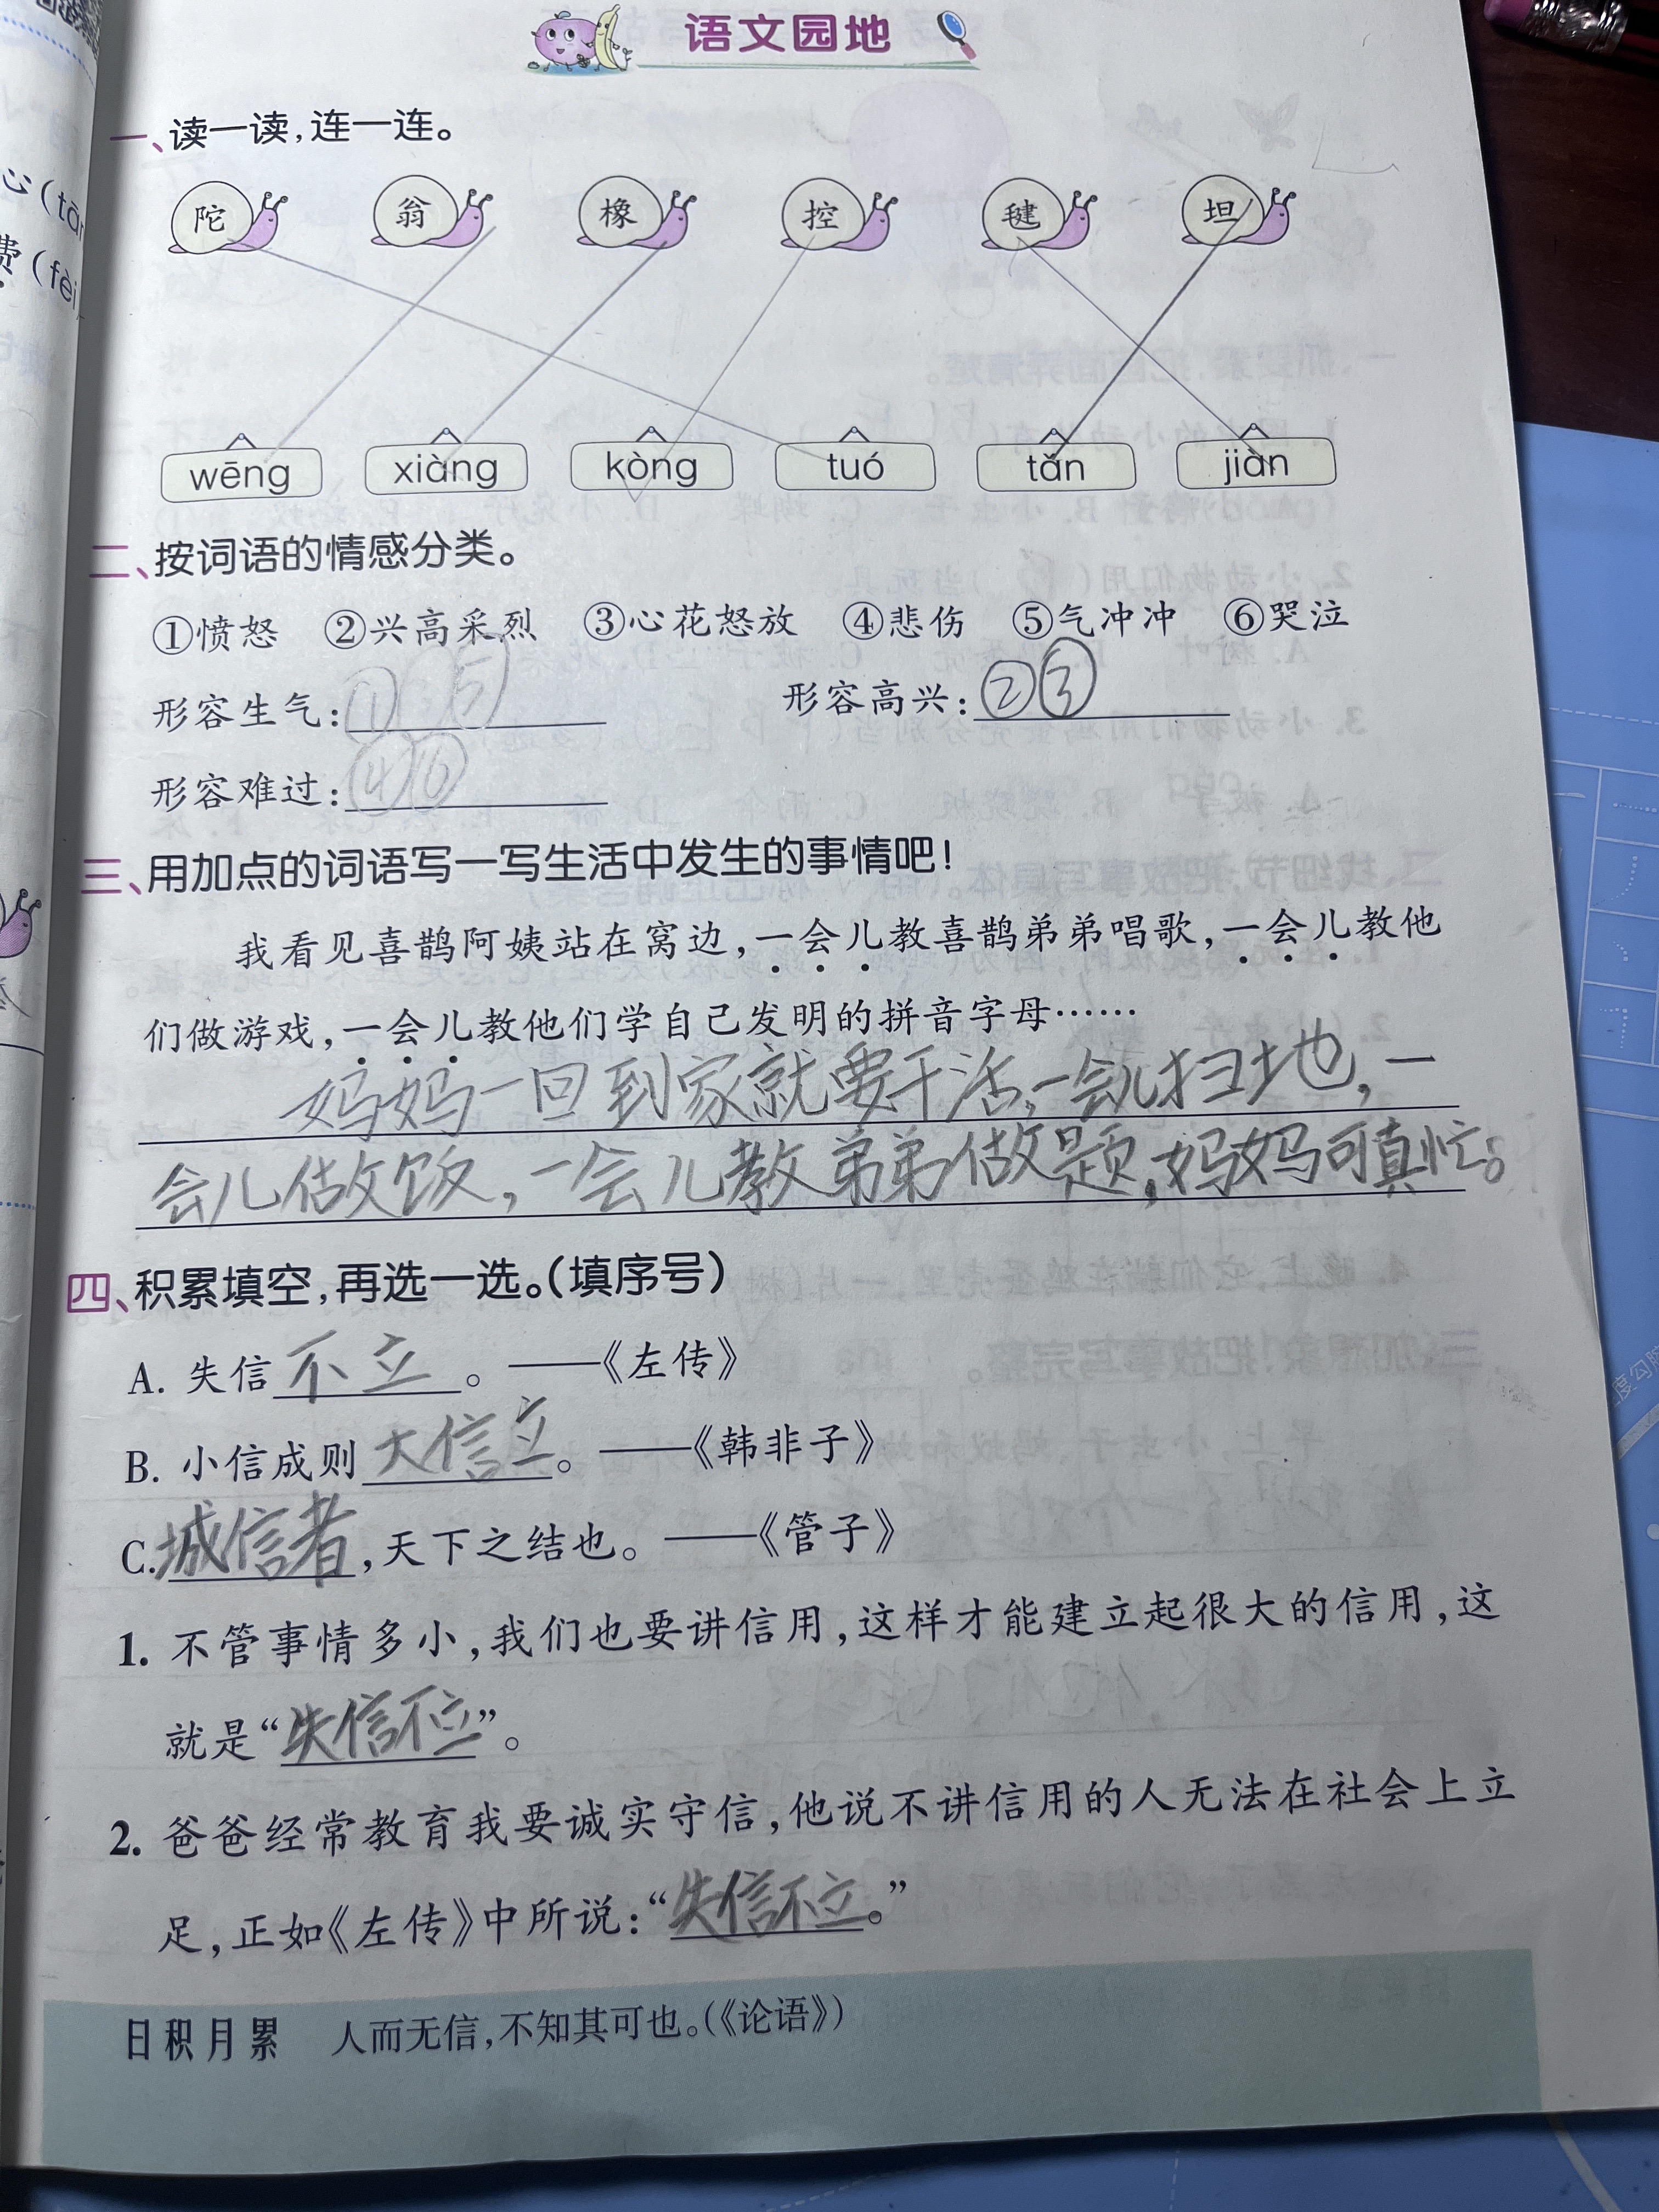 语文园地
一、读一读，连一连。
陀 翁 橡 控 毽 坦
wēng xiàng kòng tuó tǎn jiàn
二、按词语的情感分类。
①愤怒 ②兴高采烈 ③心花怒放 ④悲伤 ⑤气冲冲 ⑥哭泣
形容生气：①⑤ 形容高兴：②③
形容难过：④⑥
三、用加点的词语写一写生活中发生的事情吧！
我看见喜鹊阿姨站在窝边，一会儿教喜鹊弟弟唱歌，一会儿教他
们做游戏，一会儿教他们学自己发明的拼音字母……
妈妈一回到家就要干活，一会儿扫地，一
会儿做饭，一会儿教弟弟做题，妈妈可真忙。
四、积累填空，再选一选。（填序号）
A. 失信不立。——《左传》
B. 小信成则大信立。——《韩非子》
C. 诚信者，天下之结也。——《管子》
1. 不管事情多小，我们也要讲信用，这样才能建立起很大的信用，这
就是“失信不立”。
2. 爸爸经常教育我要诚实守信，他说不讲信用的人无法在社会上立
足，正如《左传》中所说：“失信不立。”
日积月累 人而无信，不知其可也。（《论语》）
心（tǎn
费（fèi